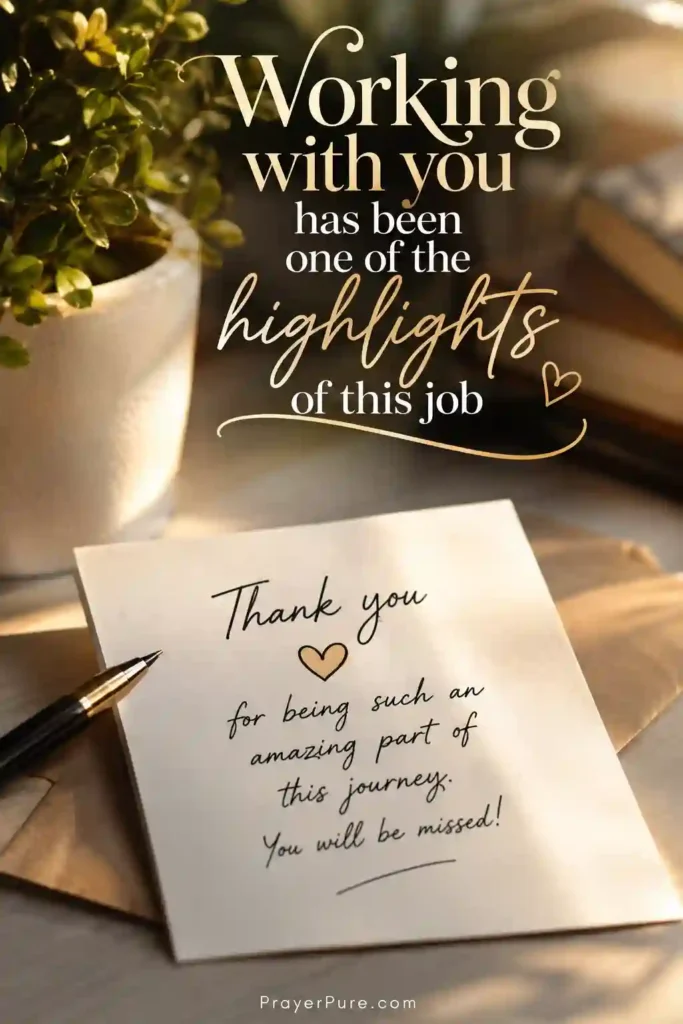 Working
with you
has been
one of the
highlights
of this job
Thank you
for being such an
amazing part of
this journey.
You will be missed!
PrayerPure.com